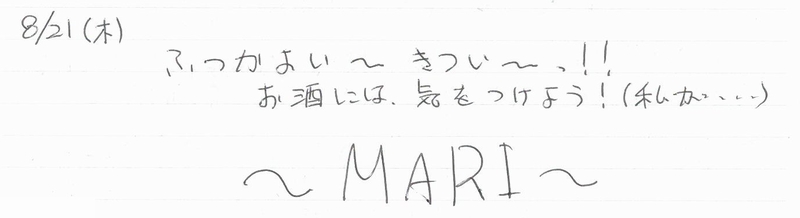 8/21(木)
ふつかよい〜 きつい〜っ!!
お酒には、気をつけよう!(私が・・・・)
〜MARI〜